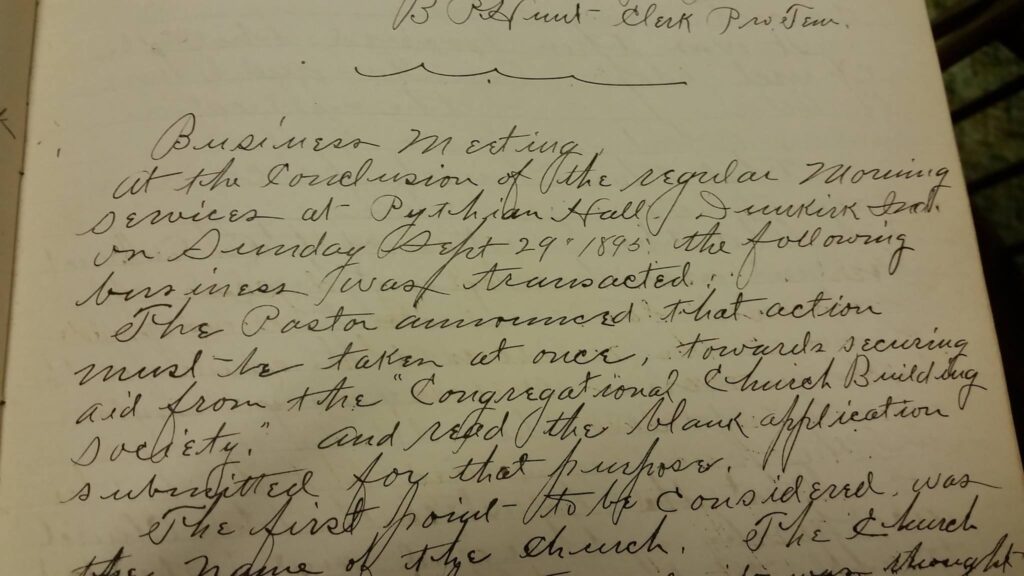 B P Hunt Clerk Pro. Tem.
Business Meeting
at the Conclusion of the regular Morning
services at Pythian Hall. Dunkirk Ind.
on Sunday Sept 29" 1895 the following
business was transacted:
The Pastor announced that action
must be taken at once, towards securing
aid from the "Congregational Church Building
society." and read the blank application
submitted for that purpose.
The first point to be considered was
the name of the church. The Church
was thought